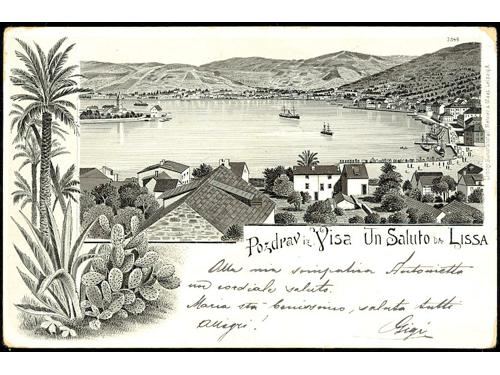 7348
Pozdrav iz Visa Un Saluto da Lissa
Alla mia simpatica Antonietta
un cordiale saluto.
Maria sta benissimo, saluta tutti
Allegri!
Gigi